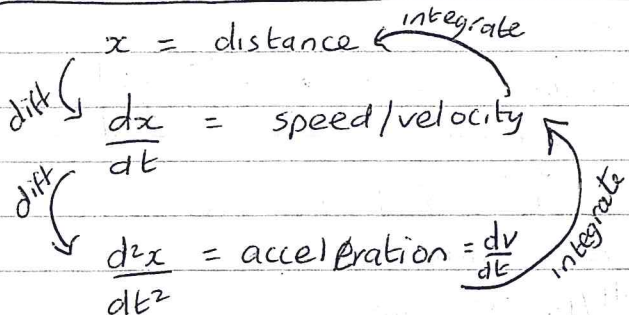 x = distance integrate
diff
dx/dt = speed/velocity
diff
d²x/dt² = acceleration = dv/dt integrate